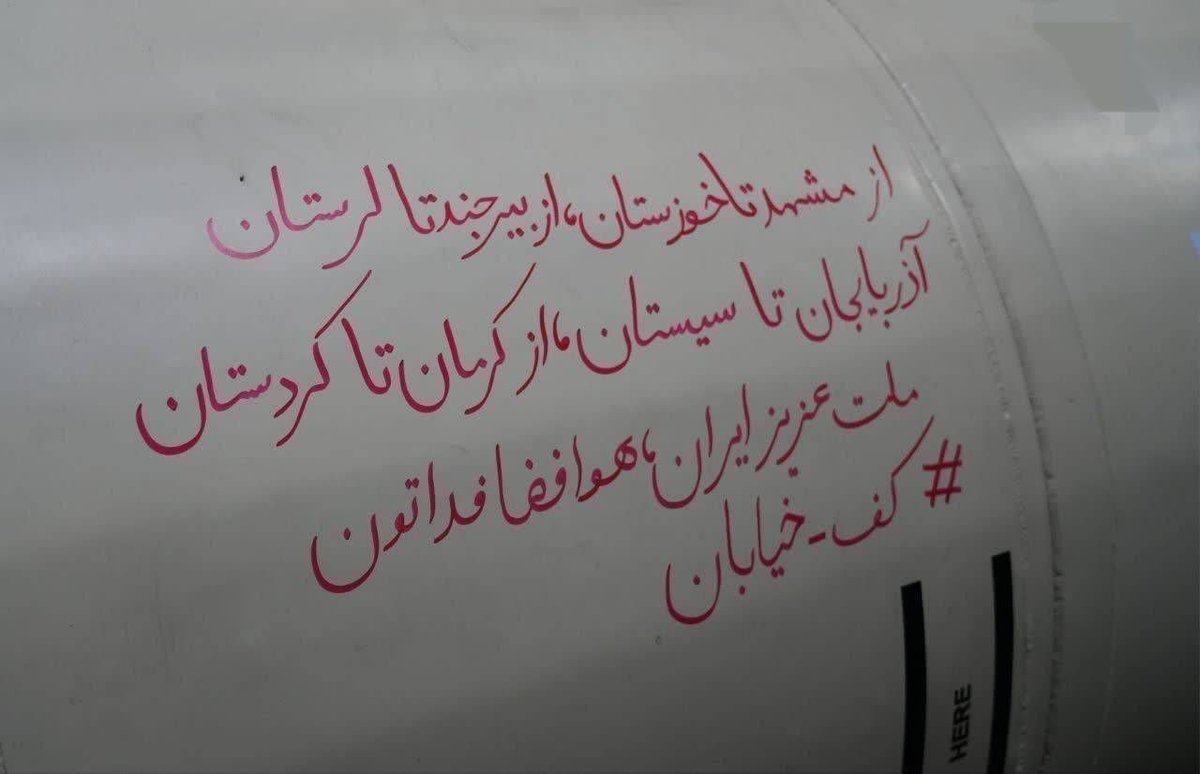 از مشهد تا خوزستان، از بیرجند تا لرستان
آذربایجان تا سیستان، از کرمان تا کردستان
ملت عزیز ایران، هوافضا فداتون
#کف_خیابان
HERE